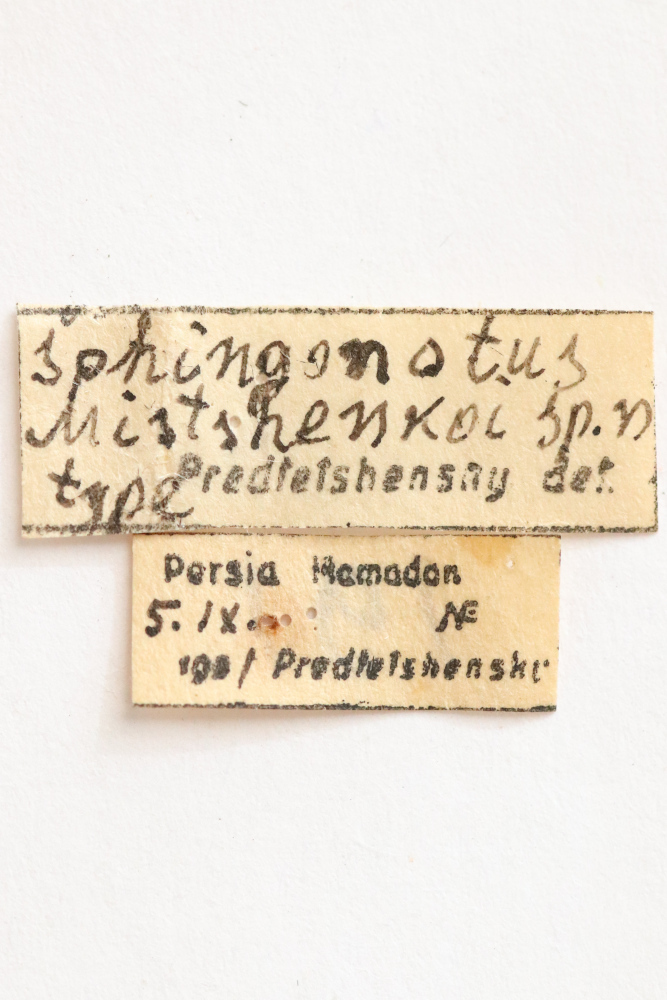 Sphingonotus
Mistshenkoi sp.n
type Predtetshensny det.
Persia Hamadan
5.IX. №
Predtetshenski